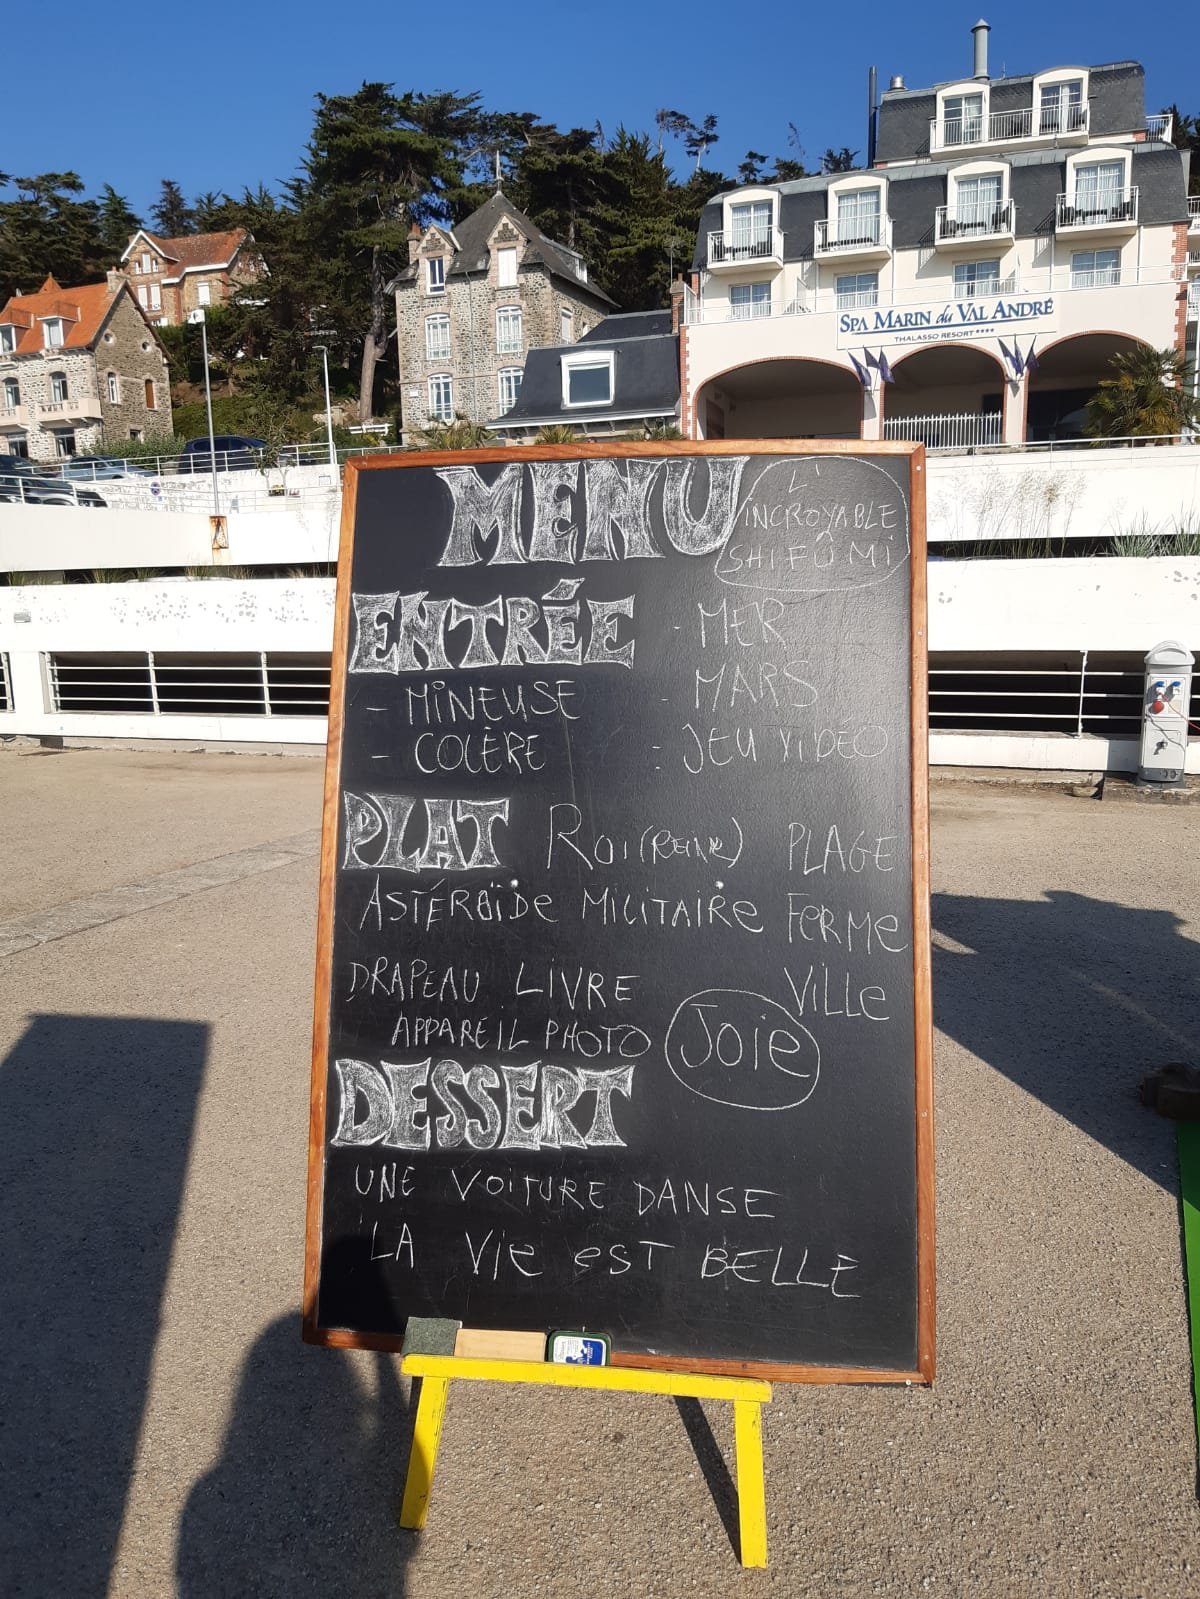 SPA MARIN du VAL ANDRÉ
THALASSO RESORT ****
MENU
L'
INCROYABLE
SHIFÛMI
ENTRÉE
- MINEUSE
- COLÈRE
- MER
- MARS
- JEU VIDÉO
PLAT
ROI (REINE) PLAGE
ASTÉROÏDE MILITAIRE FERME
DRAPEAU LIVRE VILLE
APPAREIL PHOTO
JOIE
DESSERT
UNE VOITURE DANSE
LA VIE EST BELLE